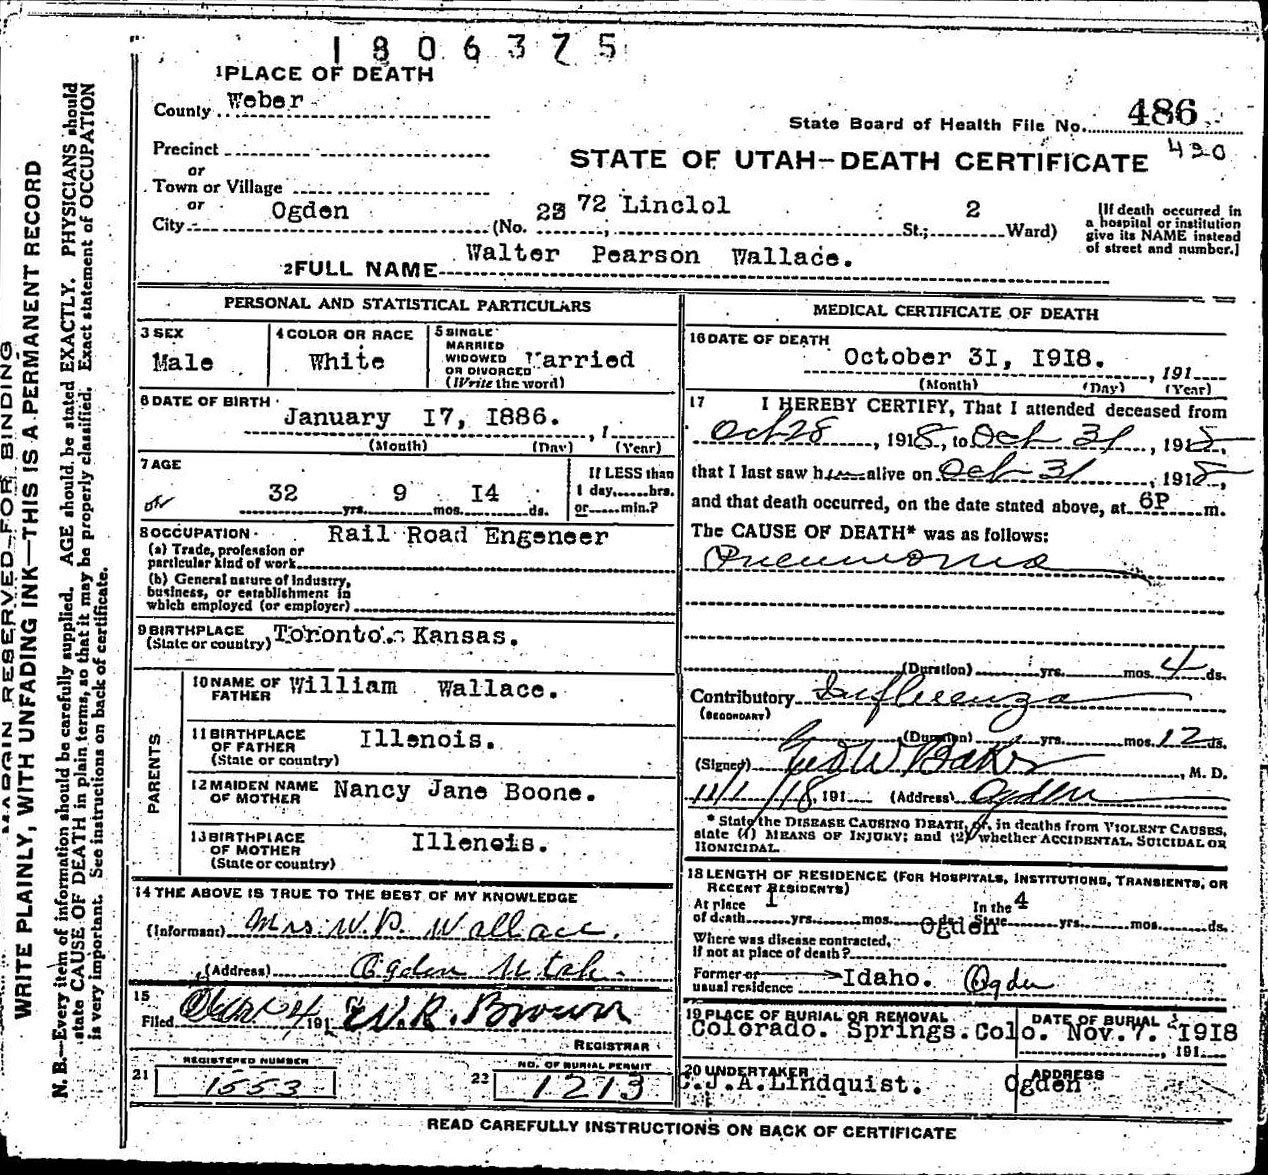 1806375
1 PLACE OF DEATH
County Weber
State Board of Health File No. 486
430
Precinct
or
Town or Village
or
City Ogden (No. 2372 Linclol St.; 2 Ward)
STATE OF UTAH—DEATH CERTIFICATE
[If death occurred in
a hospital or institution
give its NAME instead
of street and number.]
2 FULL NAME Walter Pearson Wallace.
PERSONAL AND STATISTICAL PARTICULARS
3 SEX
Male
4 COLOR OR RACE
White
5 SINGLE
MARRIED
WIDOWED
OR DIVORCED
(Write the word)
Married
6 DATE OF BIRTH
January 17, 1886. , 1
(Month) (Day) (Year)
7 AGE
32 yrs. 9 mos. 14 ds.
If LESS than
1 day,......hrs.
or......min.?
8 OCCUPATION Rail Road Engeneer
(a) Trade, profession or
particular kind of work
(b) General nature of industry,
business, or establishment in
which employed (or employer)
9 BIRTHPLACE
(State or country) Toronto. Kansas.
PARENTS
10 NAME OF
FATHER William Wallace.
11 BIRTHPLACE
OF FATHER
(State or country)
Illenois.
12 MAIDEN NAME
OF MOTHER Nancy Jane Boone.
13 BIRTHPLACE
OF MOTHER
(State or country)
Illenois.
14 THE ABOVE IS TRUE TO THE BEST OF MY KNOWLEDGE
(Informant) Mrs. W.P. Wallace.
(Address) Ogden Utah.
15
Filed 4 191 W.R. Brown
REGISTRAR
21 REGISTERED NUMBER
1553
22 NO. OF BURIAL PERMIT
1213
MEDICAL CERTIFICATE OF DEATH
16 DATE OF DEATH
October 31, 1918. , 191
(Month) (Day) (Year)
17 I HEREBY CERTIFY, That I attended deceased from
Oct 28, 1918, to Oct 31, 1918,
that I last saw him alive on Oct 31, 1918,
and that death occurred, on the date stated above, at 6P m.
The CAUSE OF DEATH* was as follows:
Pneumonia
(Duration) yrs. mos. 4 ds.
Contributory Influenza
(SECONDARY)
(Duration) yrs. mos. 12 ds.
(Signed) Geo W Baker, M. D.
11/1/18, 191 (Address) Ogden
* State the DISEASE CAUSING DEATH, or, in deaths from VIOLENT CAUSES,
state (1) MEANS OF INJURY; and (2) whether ACCIDENTAL, SUICIDAL OR
HOMICIDAL.
18 LENGTH OF RESIDENCE (FOR HOSPITALS, INSTITUTIONS, TRANSIENTS, OR
RECENT RESIDENTS)
At place
of death 1 yrs. mos. In the
State 4 yrs. mos. ds.
Ogden
Where was disease contracted,
If not at place of death?
Former or
usual residence Idaho. Ogden
19 PLACE OF BURIAL OR REMOVAL
Colorado. Springs.Colo.
DATE OF BURIAL
Nov. 7. 1918
, 191
20 UNDERTAKER
C.J.A.Lindquist.
ADDRESS
Ogden
READ CAREFULLY INSTRUCTIONS ON BACK OF CERTIFICATE
MARGIN RESERVED FOR BINDING
WRITE PLAINLY, WITH UNFADING INK—THIS IS A PERMANENT RECORD
N. B.—Every item of information should be carefully supplied. AGE should be stated EXACTLY. PHYSICIANS should
state CAUSE OF DEATH in plain terms, so that it may be properly classified. Exact statement of OCCUPATION
is very important. See instructions on back of certificate.